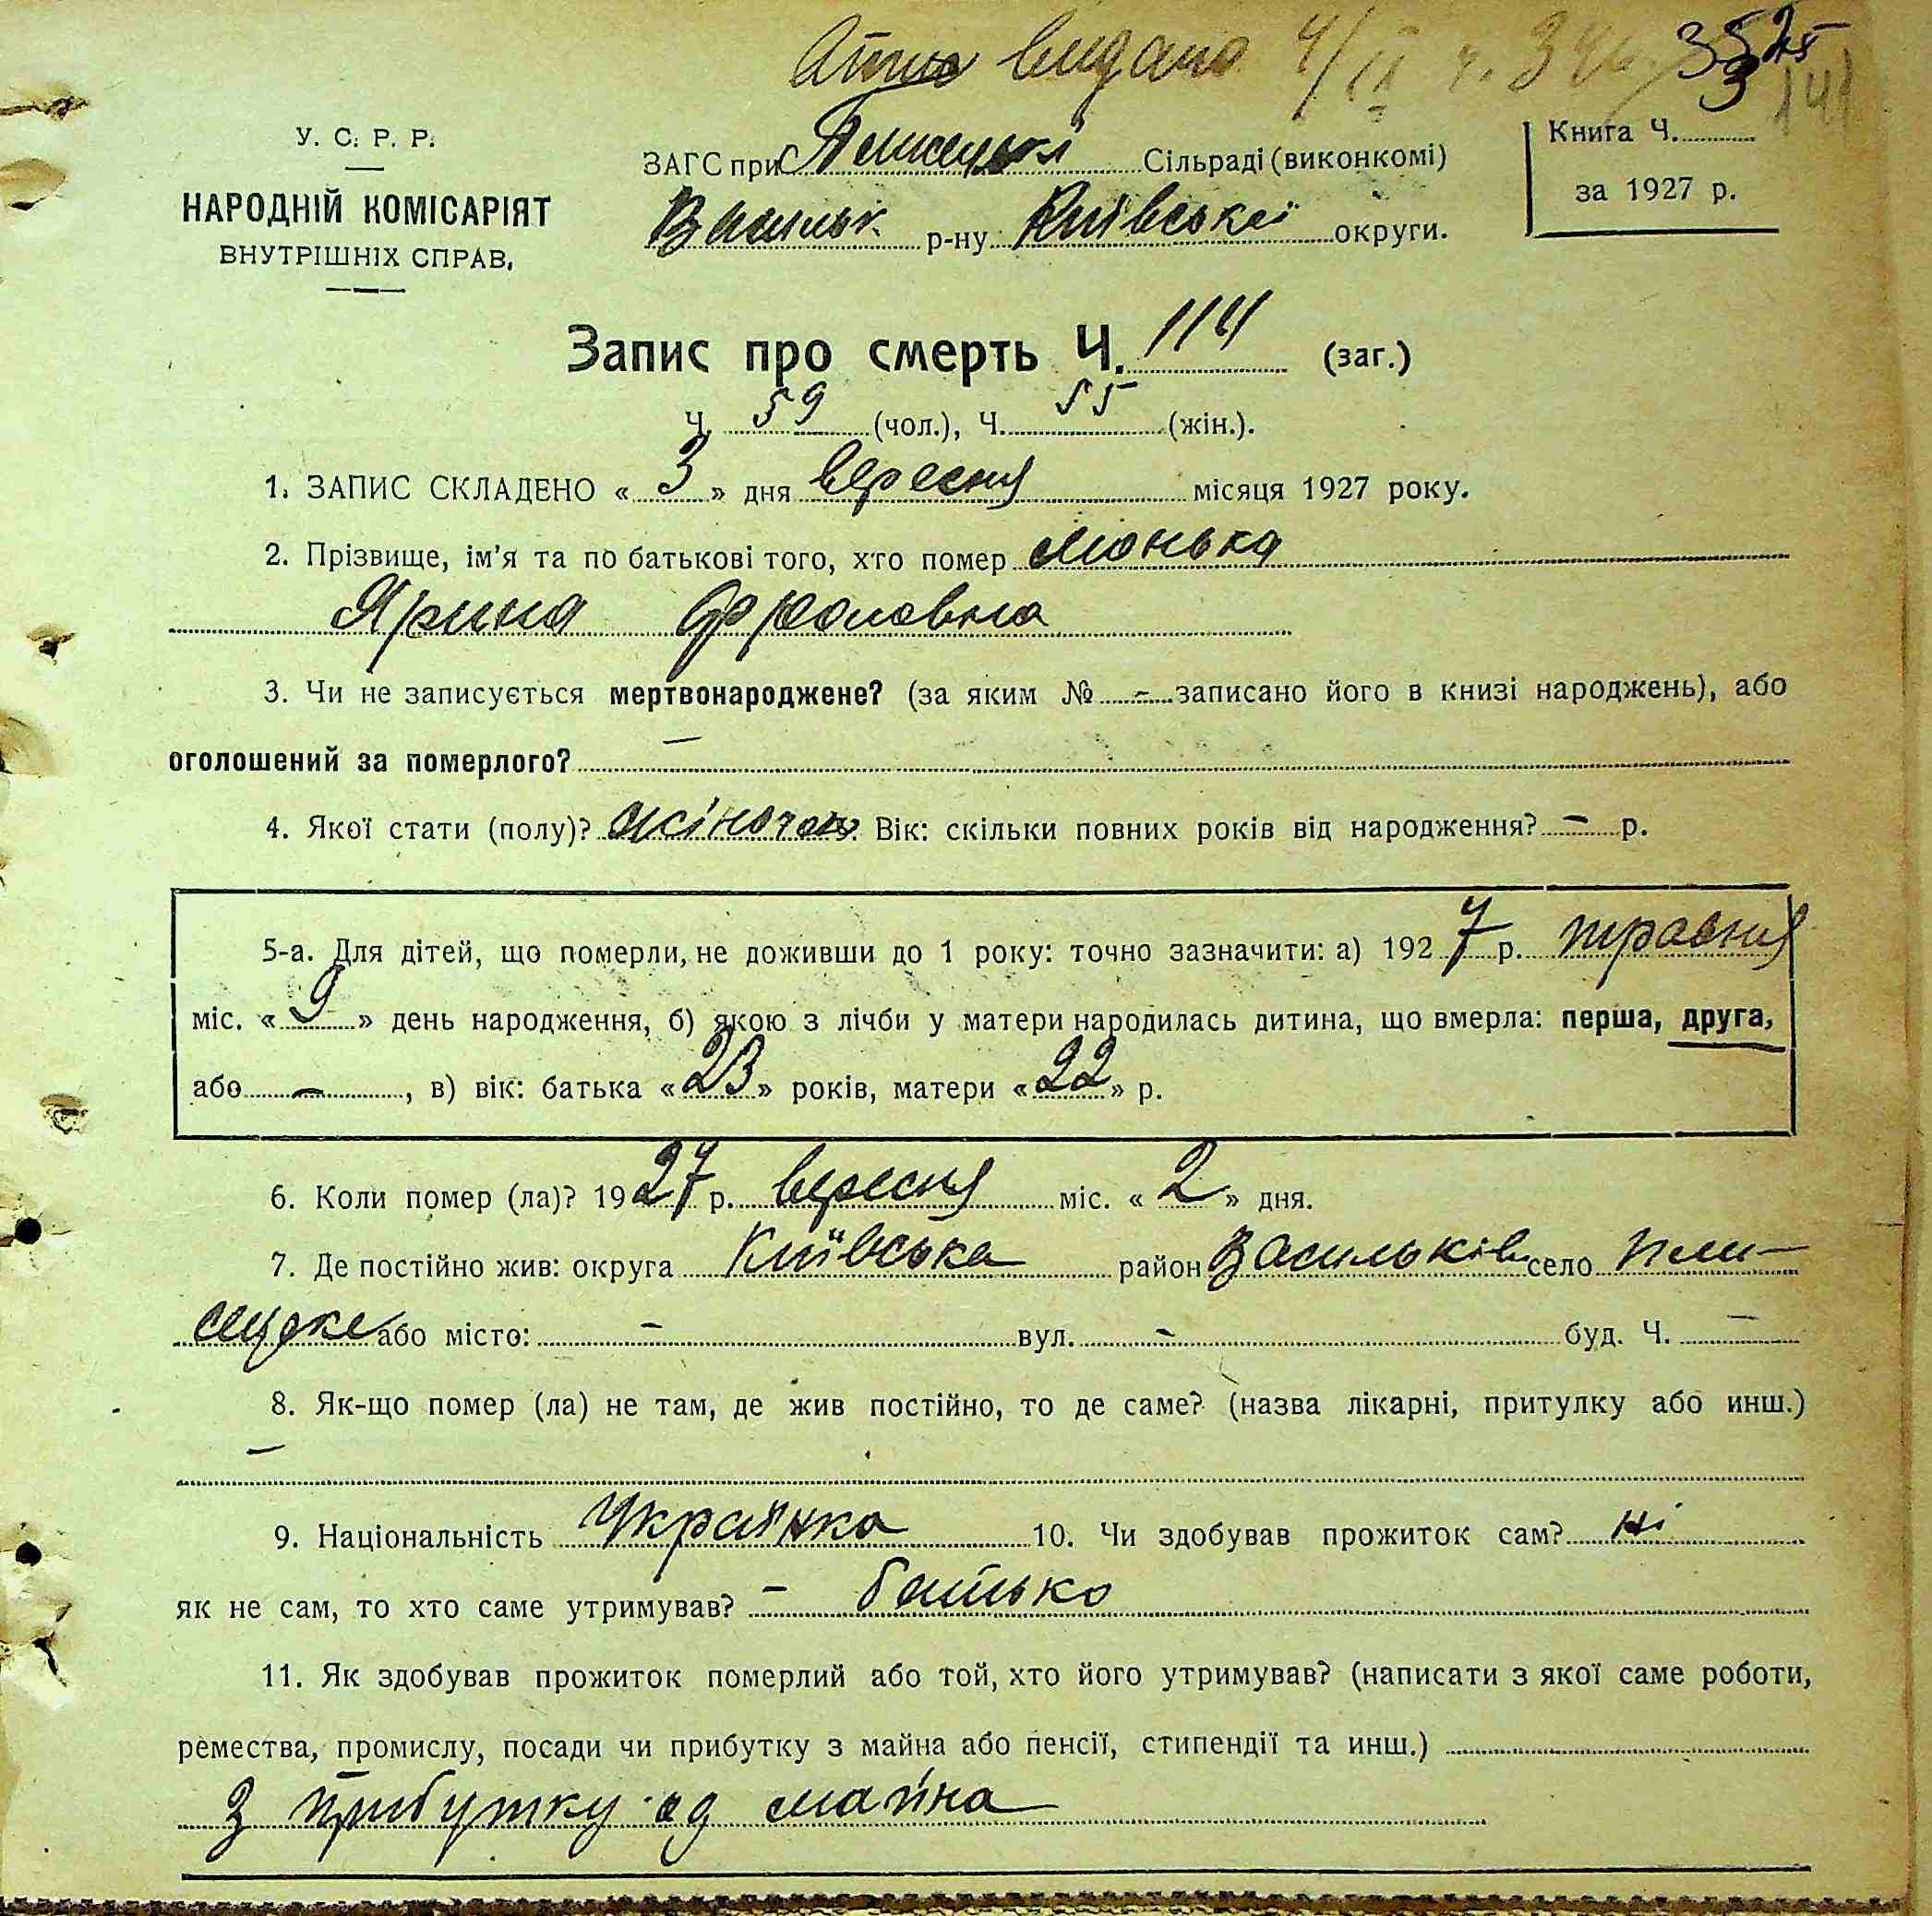 видано
35
3
У. С. Р. Р.
НАРОДНІЙ КОМІСАРІЯТ
ВНУТРІШНІХ СПРАВ,
ЗАГС при Сільраді (виконкомі)
Васильк. р-ну Київської округи.
Книга Ч.
за 1927 р.
Запис про смерть Ч. 114 (заг.)
Ч. 59 (чол.), Ч. 55 (жін.).
1. ЗАПИС СКЛАДЕНО « 3 » дня вересня місяця 1927 року.
2. Прізвище, ім'я та по батькові того, хто помер Монька
Ярина Фроловна
3. Чи не записується мертвонароджене? (за яким № - записано його в книзі народжень), або
оголошений за померлого? —
4. Якої стати (полу)? жіночої. Вік: скільки повних років від народження? - р.
5-а. Для дітей, що померли, не доживши до 1 року: точно зазначити: а) 1927 р. травня
міс. « 9 » день народження, б) якою з лічби у матери народилась дитина, що вмерла: перша, друга,
або —, в) вік: батька « 23 » років, матери « 22 » р.
6. Коли помер (ла)? 1927 р. вересня міс. « 2 » дня.
7. Де постійно жив: округа Київська район Васильків село Пли-
сецьке або місто: - вул. - буд. Ч. —
8. Як-що помер (ла) не там, де жив постійно, то де саме? (назва лікарні, притулку або инш.)
—
9. Національність Українка 10. Чи здобував прожиток сам? ні
як не сам, то хто саме утримував? - батько
11. Як здобував прожиток померлий або той, хто його утримував? (написати з якої саме роботи,
ремества, промислу, посади чи прибутку з майна або пенсії, стипендії та инш.)
З прибутку од майна